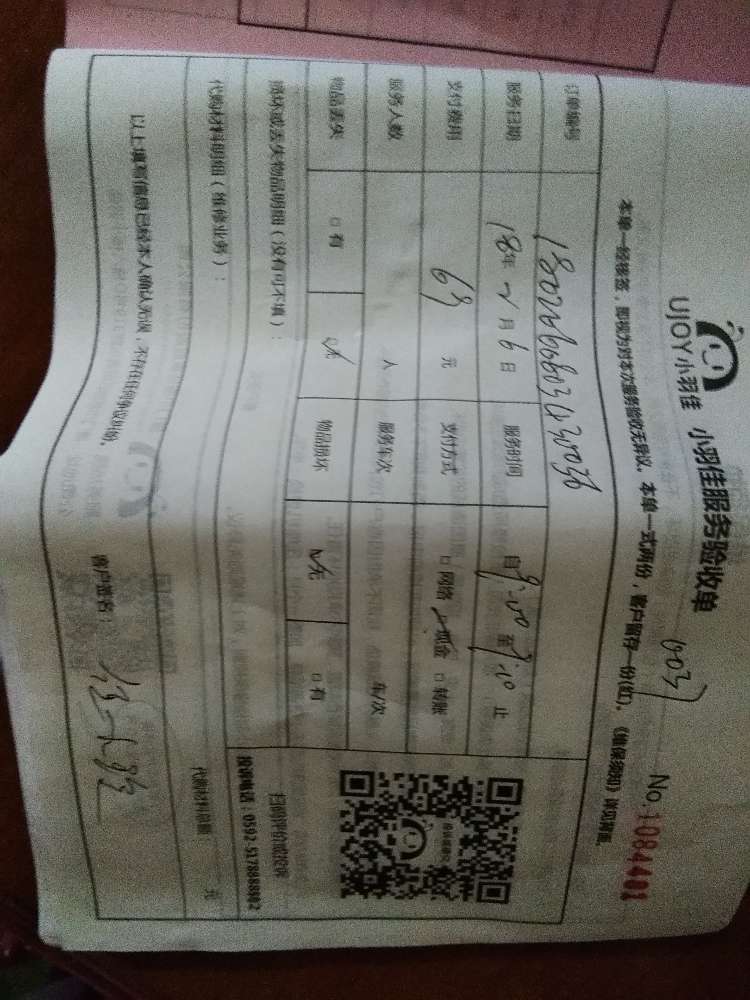 UJOY小羽佳 小羽佳服务验收单
6037
No.1084401
本单一经接签，即视为对本次服务验收无异议。本单一式两份，客户留存一份(红)。《维保须知》详见背面。
订单编号
服务日期 18年2月6日 服务时间 自 至 止
支付费用 元 支付方式 □ 网络 现金 □ 转账
服务人数 人 服务车次 车/次
物品丢失 □ 有 无 物品损坏 无 □ 有
损坏或丢失物品明细（没有可不填）：
扫码评价或投诉
投诉电话：0592-5178888转2
代购材料明细（维修业务）：
代购材料总额： 元
以上填写信息已经本人确认无误，不存在任何争议纠纷。
客户签名：